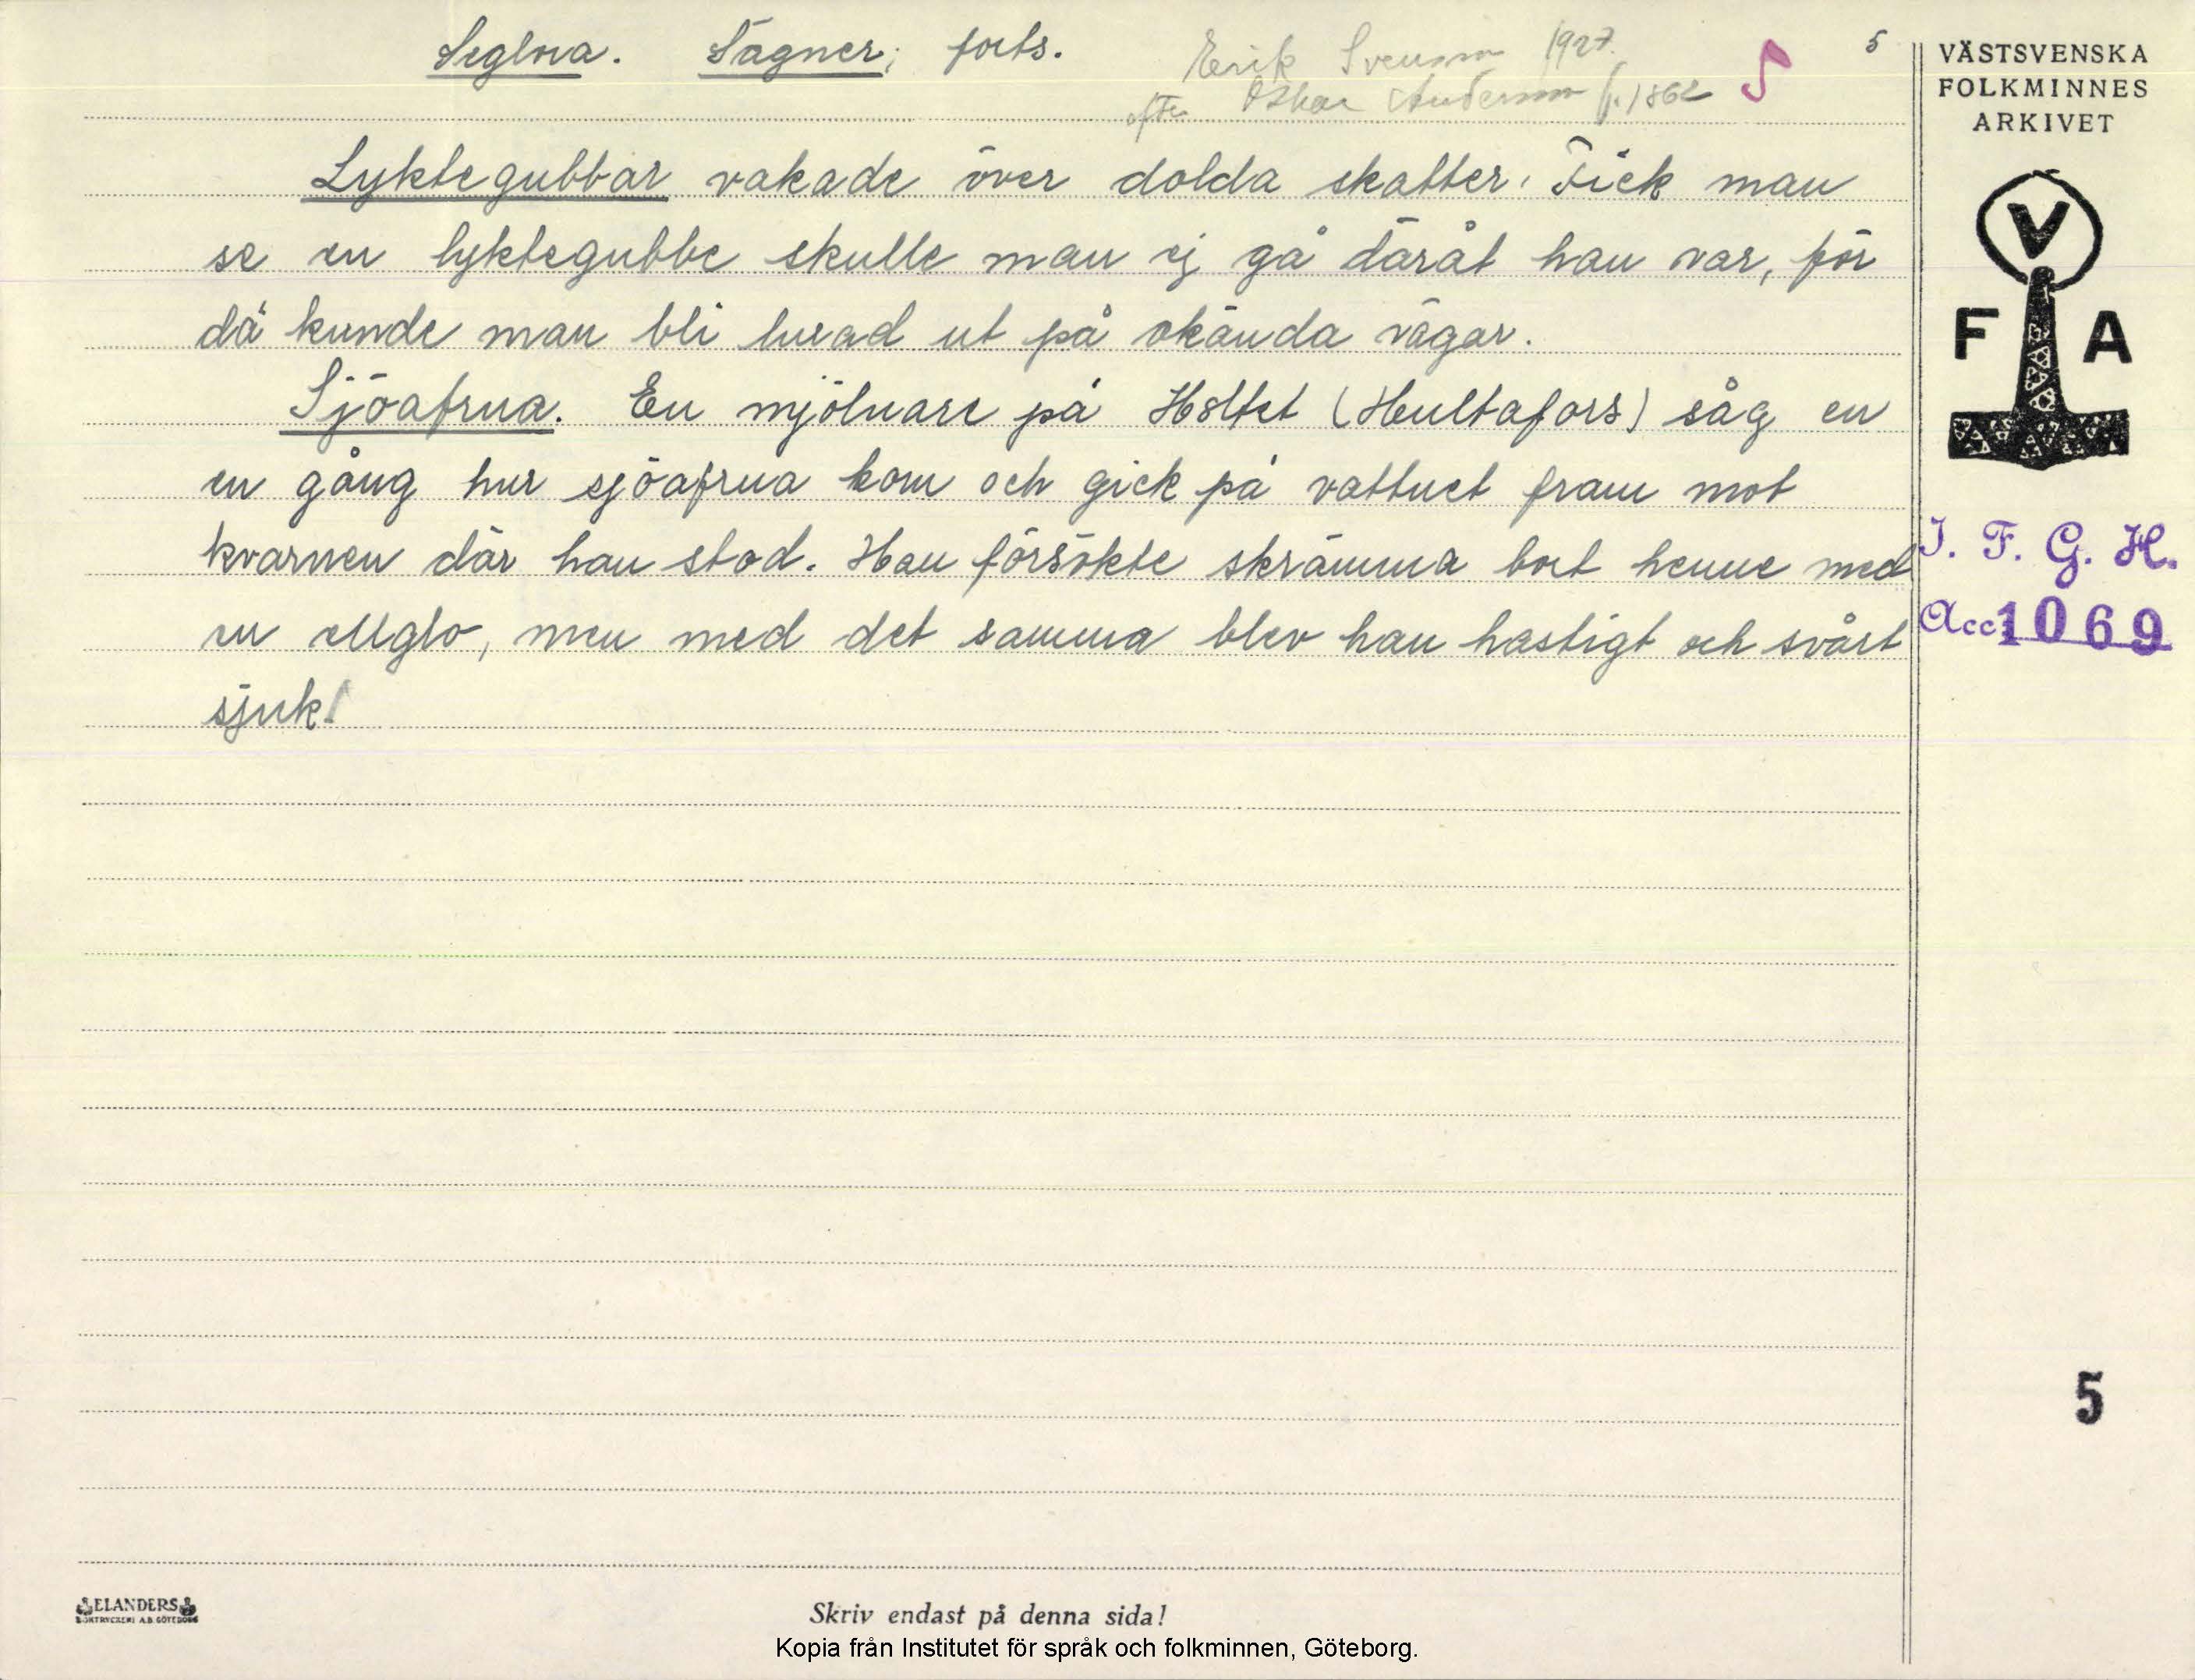 Seglora. Sägner, forts.
Erik Svensson 1927.
efter Oskar Andersson f. 1862
5
Lyktegubbar vakade över dolda skatter. Fick man
se en lyktegubbe skulle man ej gå däråt han var, för
då kunde man bli lurad ut på okända vägar.
Sjöafrua. En mjölnare på Holtet (Hultafors) såg en
en gång hur sjöafrua kom och gick på vattnet fram mot
kvarnen där han stod. Han försökte skrämma bort henne med
en ellglo, men med det samma blev han hastigt och svårt
sjuk!
VÄSTSVENSKA
FOLKMINNES
ARKIVET
V
F A
I. F. G. H.
Acc: 1069
5
ELANDERS
BOKTRYCKERI A.B. GÖTEBORG
Skriv endast på denna sida!
Kopia från Institutet för språk och folkminnen, Göteborg.